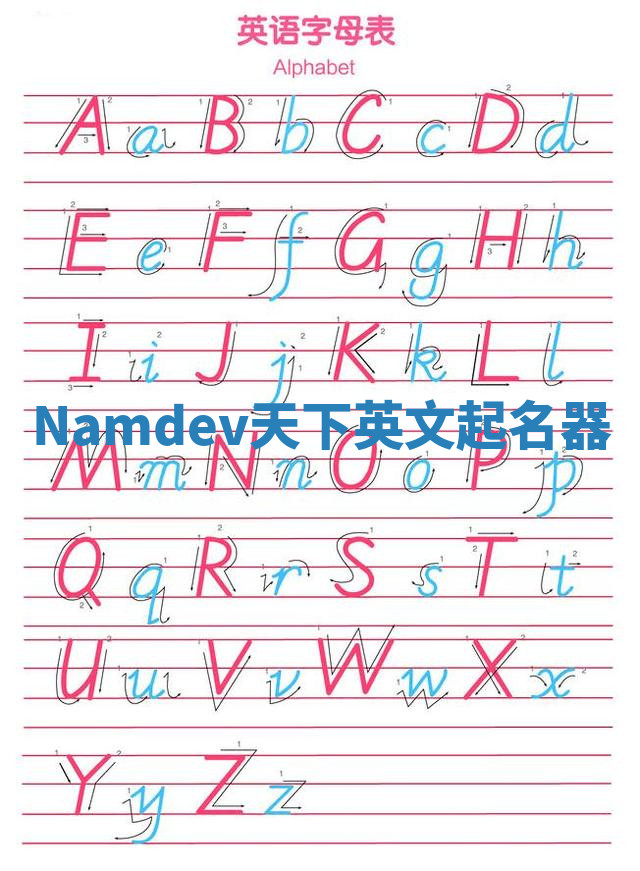 英语字母表
Alphabet
A a B b C c D d
E e F f G g H h
I i J j K k L l
Namdev天下英文起名器
M m N n O o P p
Q q R r S s T t
U u V v W w X x
Y y Z z